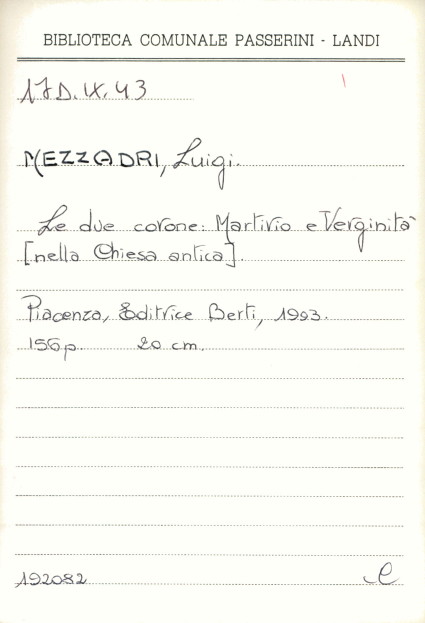 BIBLIOTECA COMUNALE PASSERINI - LANDI
17D.IX.43
MEZZADRI, Luigi.
Le due corone: Martirio e Verginità
[nella Chiesa antica].
Piacenza, Editrice Berti, 1993.
156p. 20 cm.
192082